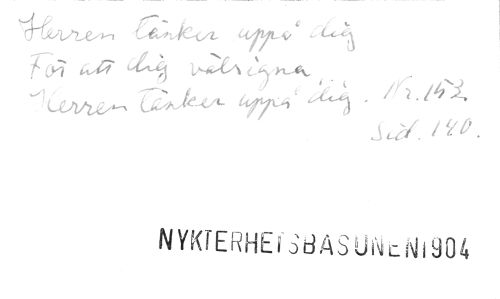 Herren tänker uppå dig
För att dig välsigna
Herren tänker uppå dig. Nr. 153.
Sid. 140.
NYKTERHETSBASUNEN 1904